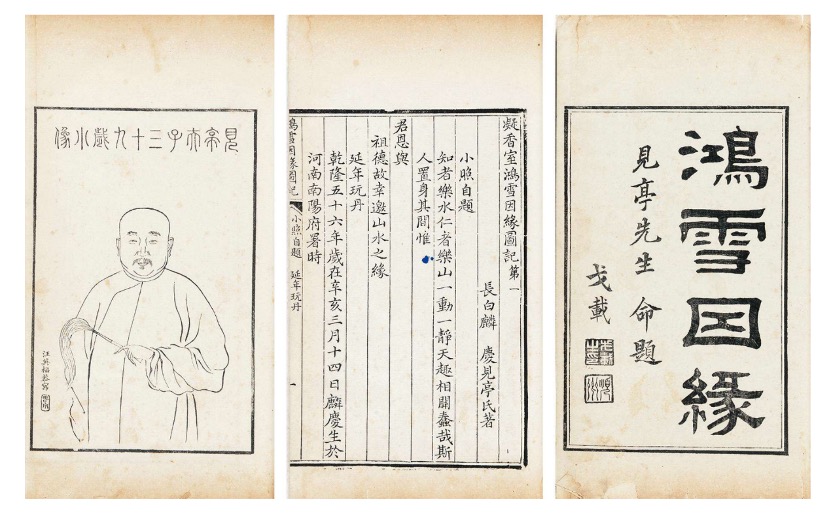 鴻雪因緣
見亭先生 命題
戈載
凝香室鴻雪因緣圖記 第一
長白麟 慶見亭氏著
小照自題
知者樂水仁者樂山一動一靜天趣相關蠢哉斯
人置身其間惟
君恩與
祖德故幸邀山水之緣
延年玩丹
乾隆五十六年歲在辛亥三月十四日麟慶生於
河南南陽府署時
鴻雪因緣圖記 小照自題 延年玩丹 一
見亭夫子三十九歲小像
汪英福恭寫